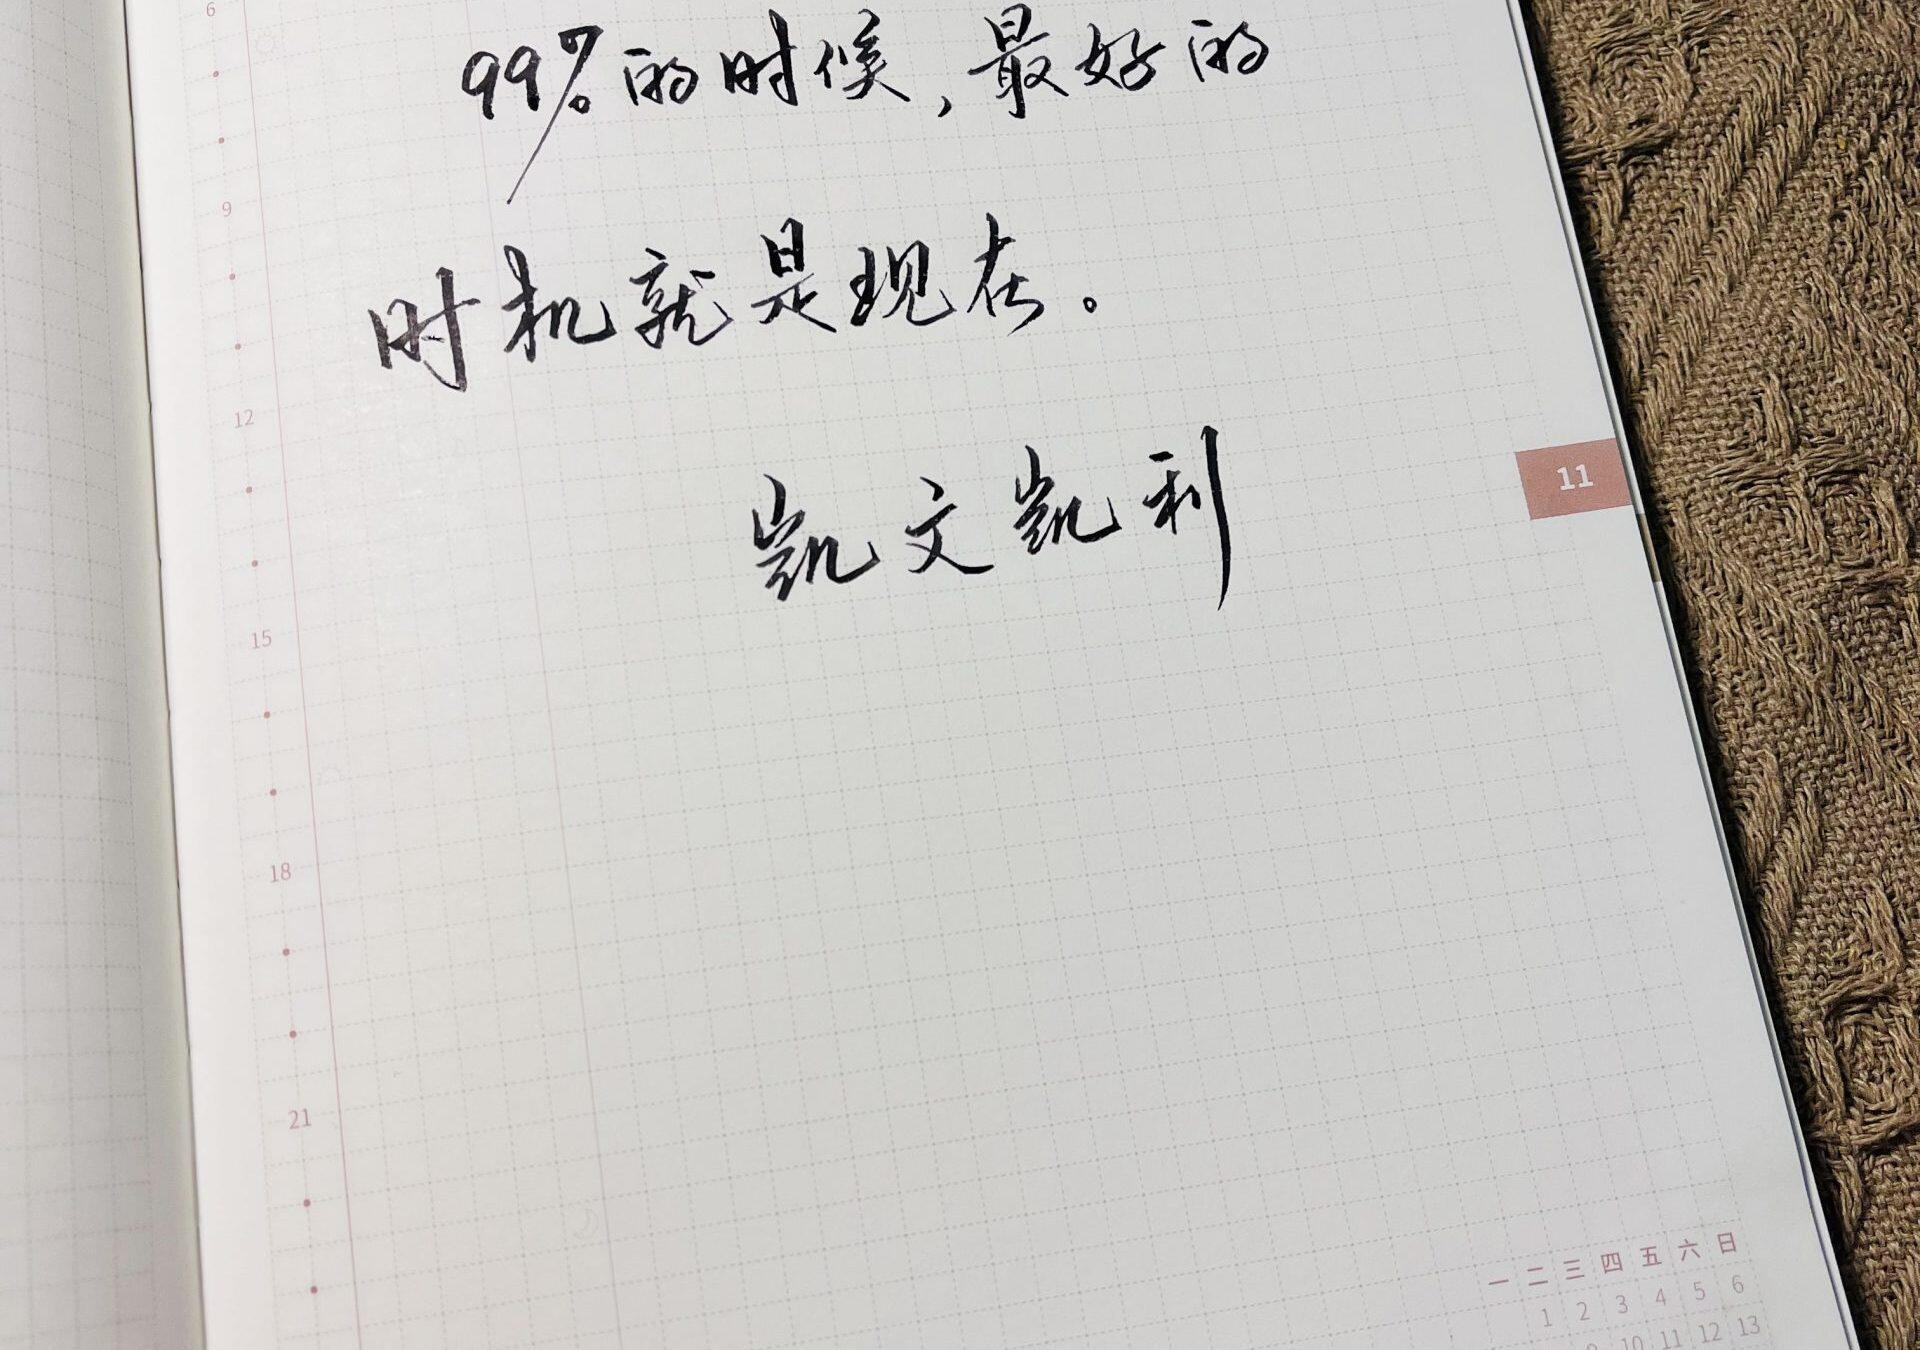 6
99%的时候，最好的
9
时机就是现在。
12
凯文凯利
11
15
18
21
一 二 三 四 五 六 日
1 2 3 4 5 6
9 10 11 12 13